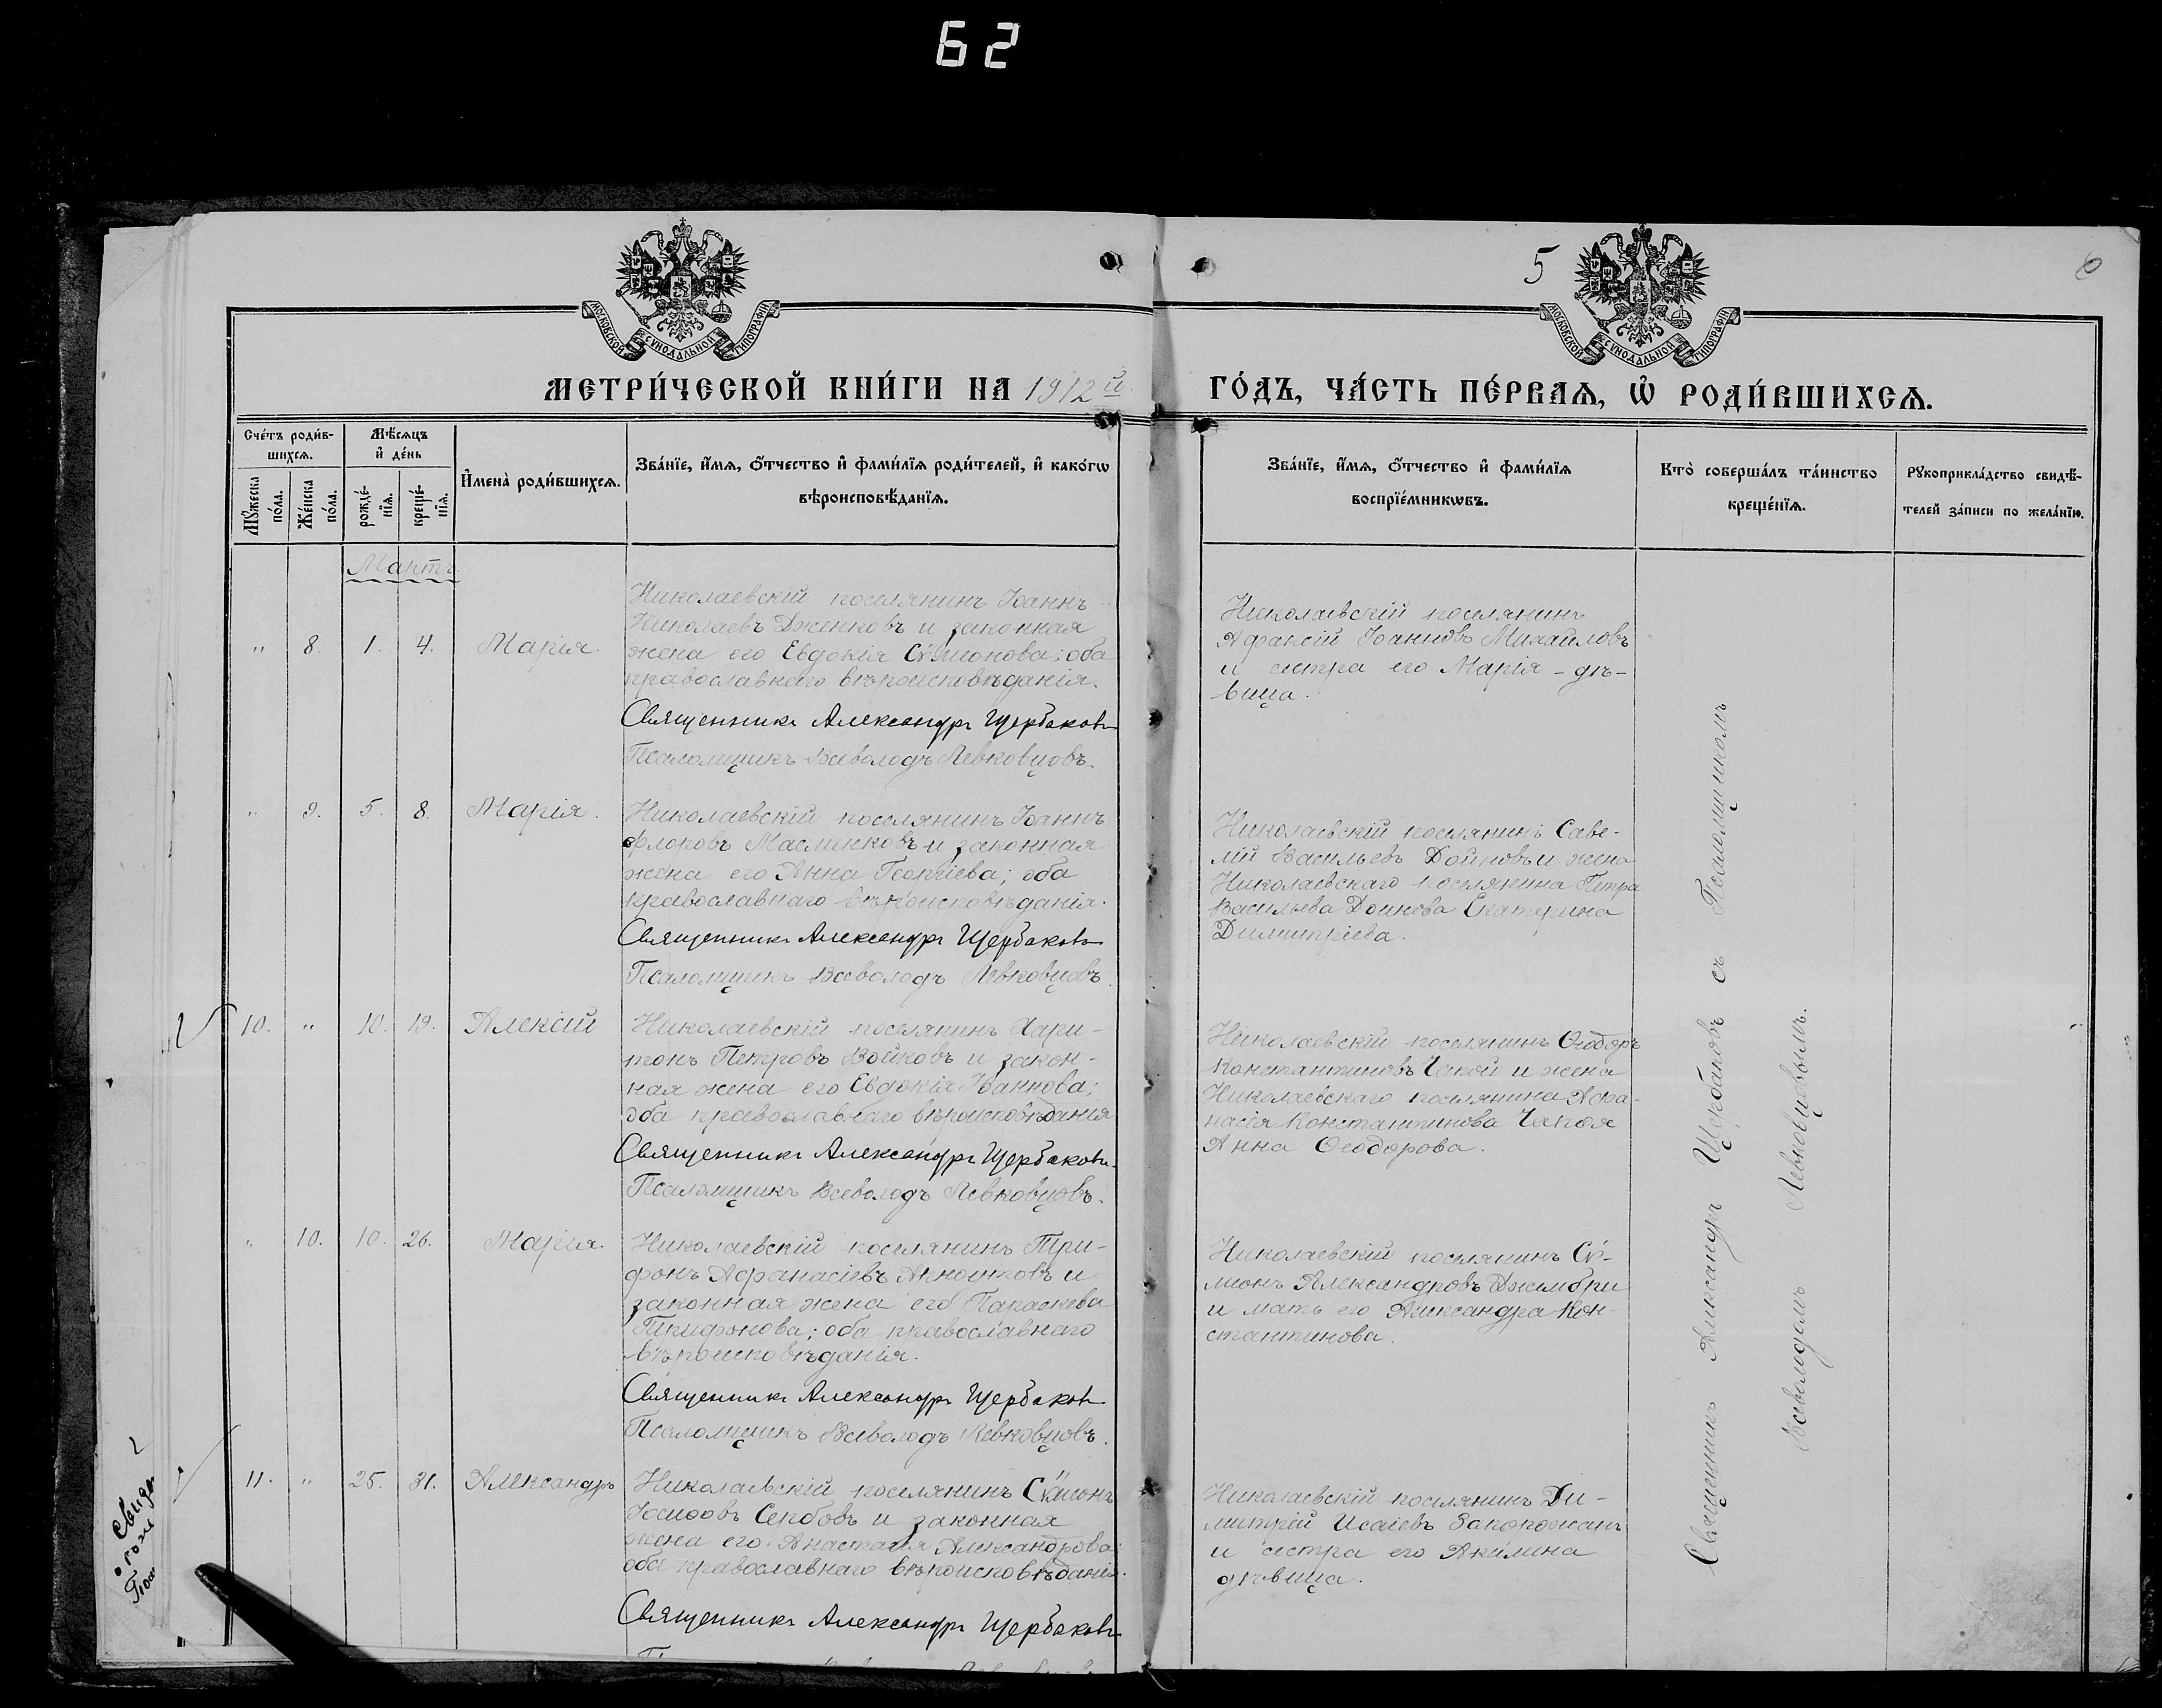 62
5
6
МОСКОВСКОЙ СѴНОДАЛЬНОЙ ТИПОГРАФІИ
МОСКОВСКОЙ СѴНОДАЛЬНОЙ ТИПОГРАФІИ
МЕТРИ́ЧЕСКОЙ КНИ́ГИ НА 1912й
ГО́ДЪ, ЧА́СТЬ ПЕ́РВАѦ, Ѡ҆ РОДИ́ВШИХСѦ.
Сче́тъ роди́в-
шихсѧ.
Мѣ́сѧцъ
и҆ де́нь
Мꙋ́жеска
по́ла.
Же́нска
по́ла.
рожде́-
нїѧ.
креще́-
нїѧ.
И҆мена̀ роди́вшихсѧ.
Зва́нїе, и҆́мѧ, ѻ҆́тчество и҆ фами́лїѧ роди́телей, и҆ како́гѡ
вѣроисповѣ́данїѧ.
Зва́нїе, и҆́мѧ, ѻ҆́тчество и҆ фами́лїѧ
воспрїе́мникѡвъ.
Кто̀ соверша́лъ та́инство
креще́нїѧ.
Рꙋкоприкла́дство свидѣ́-
телей за́писи по жела́нїю.
Мартъ.
„ 8. 1. 4. Марія.
Николаевскій поселянинъ Іоаннъ
Николаевъ Дженковъ и законная
жена его Евдокія Сѵмионова; оба
православнаго вѣроисповѣданія.
Священникъ Александръ Щербаковъ
Псаломщикъ Всеволодъ Левковцовъ.
Николаевскій поселянинъ
Афансій Іоанновъ Михайловъ
и сестра его Марія - дѣ-
вица.
„ 9. 5. 8. Марія.
Николаевскій поселянинъ Іоаннъ
Флоровъ Маслинковъ и законная
жена его Анна Георгіева; оба
православнаго вѣроисповѣданія.
Священникъ Александръ Щербаковъ
Псаломщикъ Всеволодъ Левковцовъ.
Николаевскій поселянинъ Саве-
лій Васильевъ Дойновъ и жена
Николаевскаго поселянина Петра
Васильева Доинова Екатерина
Димитріева.
10. „ 10. 19. Алексій
Николаевскій поселянинъ Хари-
тонъ Петровъ Войковъ и закон-
ная жена его Евдокія Іоаннова;
оба православнаго вѣроисповѣданія
Священникъ Александръ Щербаковъ.
Псаломщикъ Всеволодъ Левковцовъ.
Николаевскій поселянинъ Ѳеодоръ
Константиновъ Чапой и жена
Николаевскаго поселянина Афа-
насія Константинова Чапоя
Анна Ѳеодорова.
„ 10. 10. 26. Марія.
Николаевскій поселянинъ Три-
фонъ Афанасіевъ и
законная жена его Параскева
Трифонова; оба православнаго
вѣроисповѣданія.
Священникъ Александръ Щербаковъ
Псаломщикъ Всеволодъ Левковцовъ.
Николаевскій поселянинъ Сѵ-
міонъ Александровъ Джембри
и мать его Александра Кон-
стантинова.
11. „ 25. 31. Александръ
Николаевскій поселянинъ Сѵмеонъ
Іосифовъ Сербовъ и законная
жена его Анастасія Александрова;
оба православнаго вѣроисповѣданія.
Священникъ Александръ Щербаковъ
Николаевскій поселянинъ Ди-
митрій Исаіевъ Запорожанъ
и сестра его Акилина
дѣвица.
Священникъ Александръ Щербаковъ съ Псаломщикомъ
Всеволодомъ Левковцовымъ.